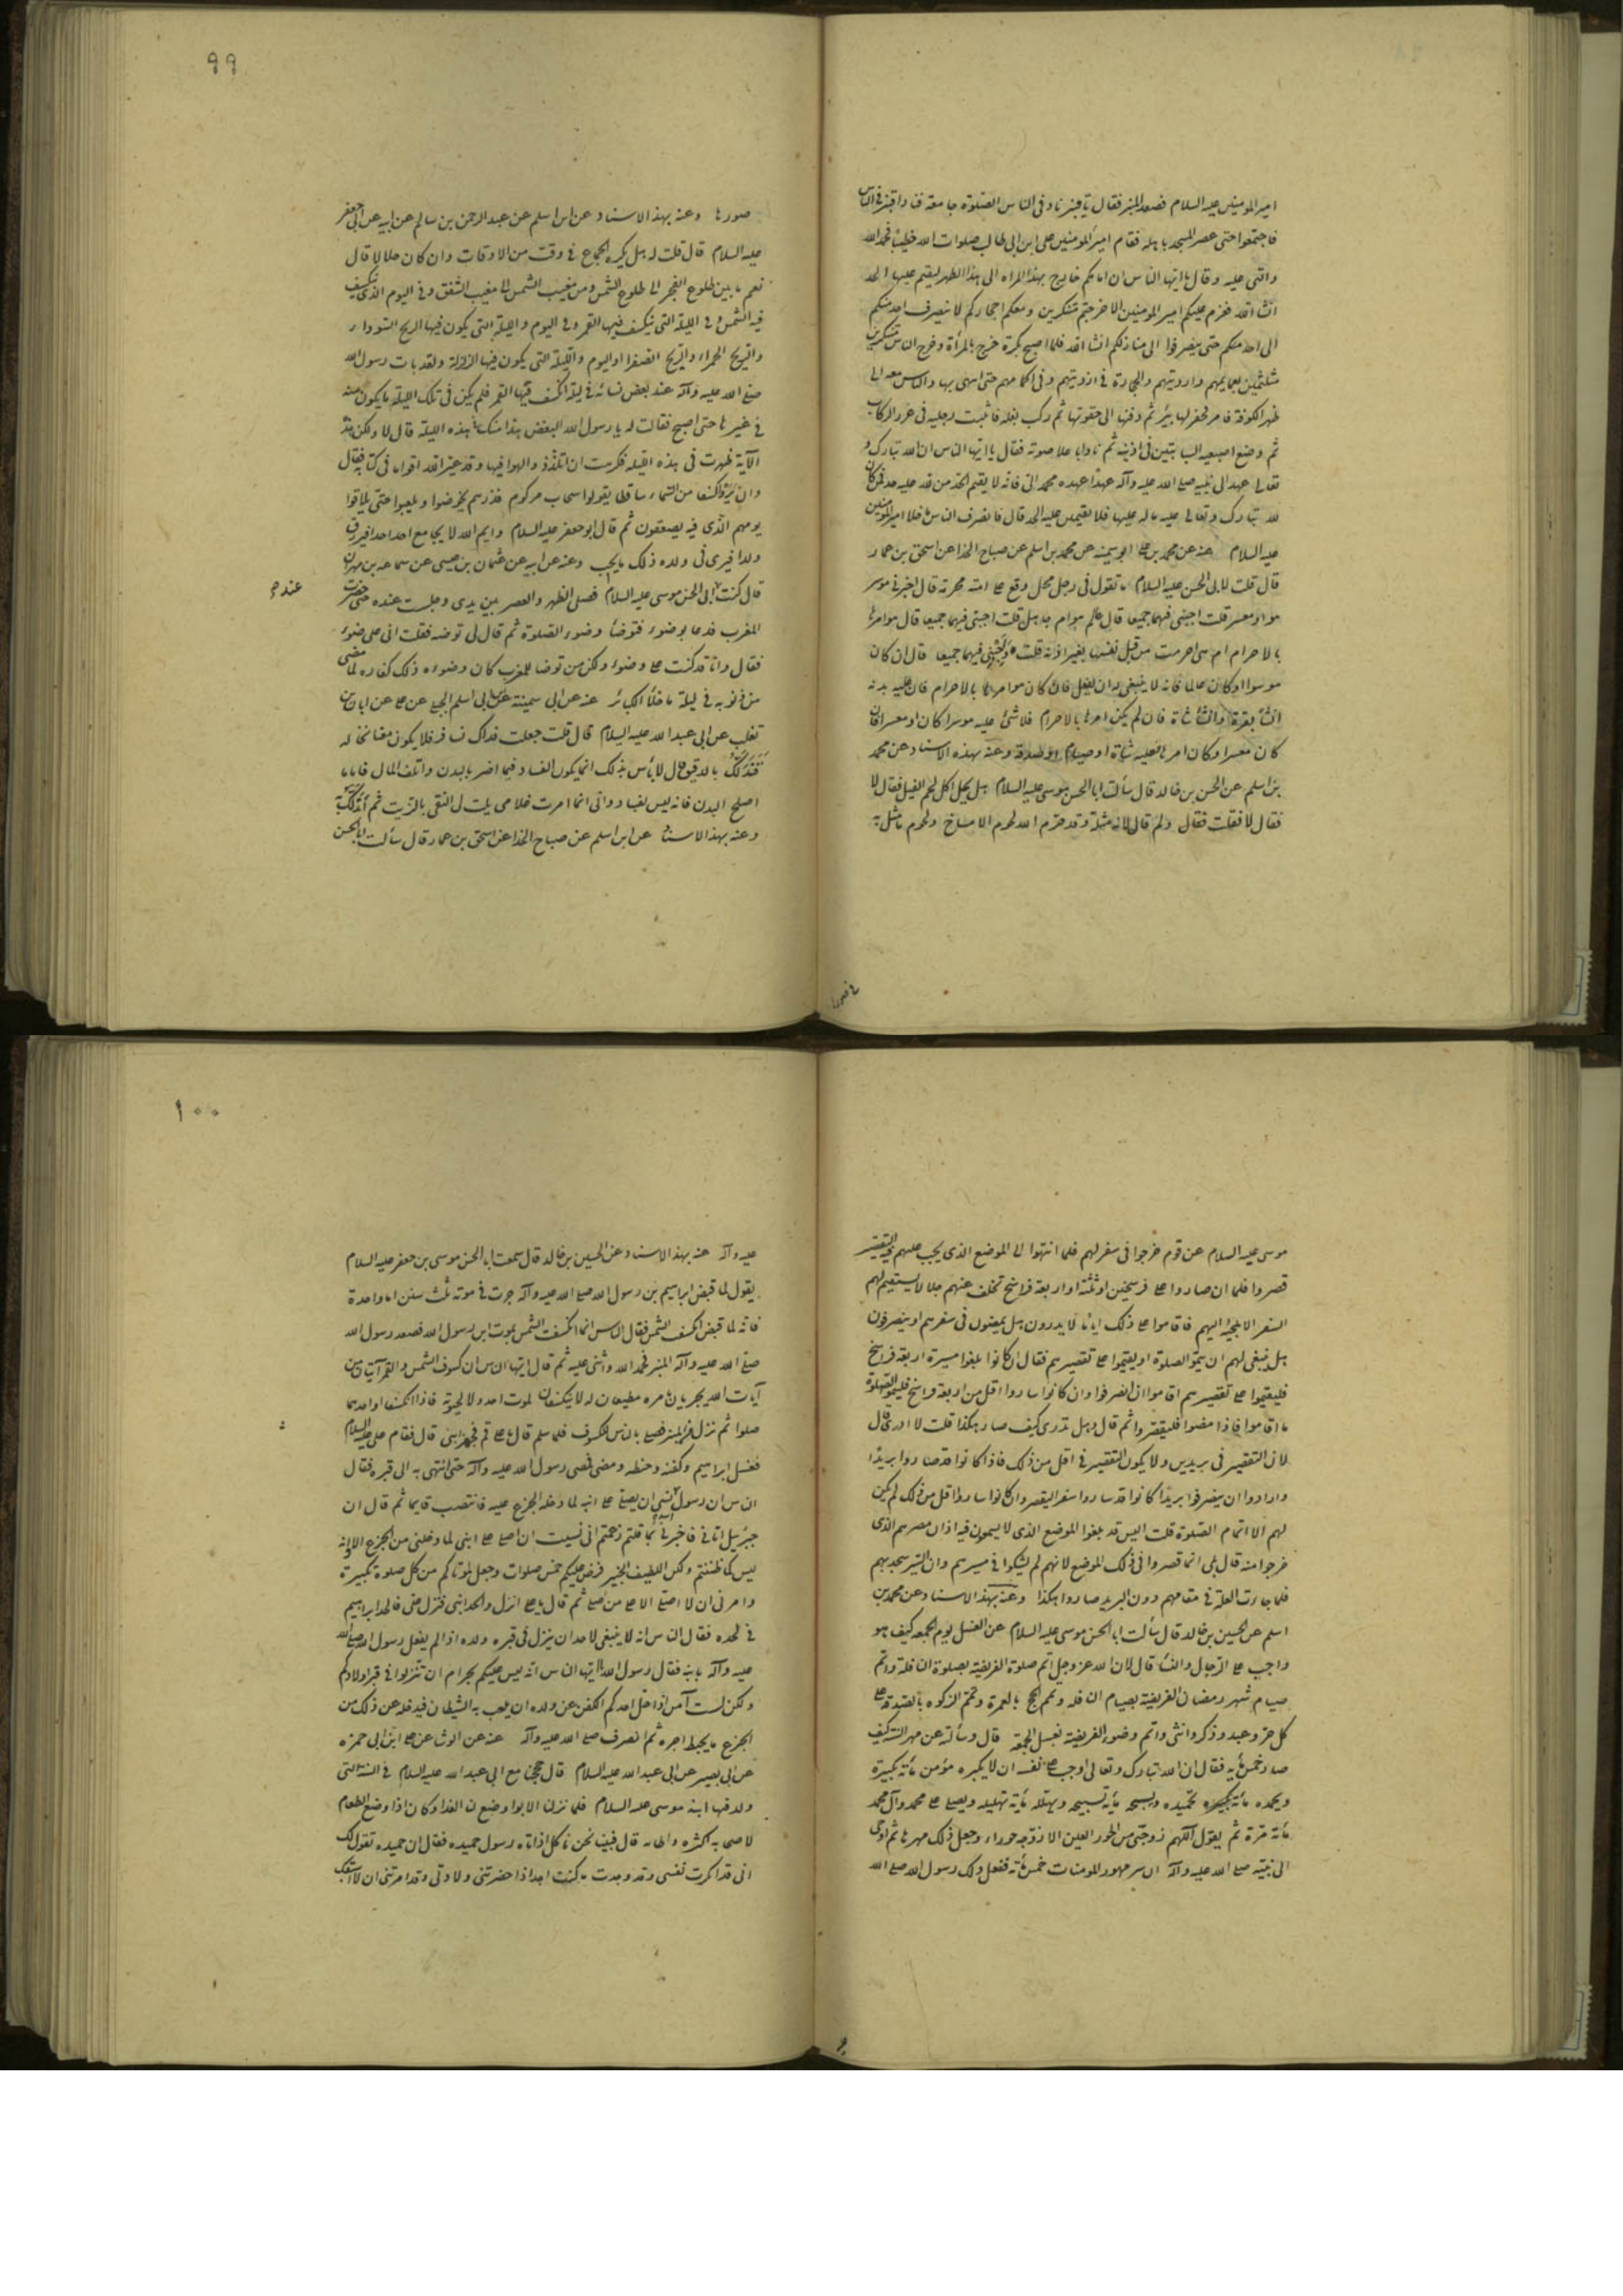 امير المومنين عليه السلام فصعد المنبر فقال يا قنبر ناد في الناس الصلوة جامعة فنادا قنبر في الناس
فاجتمعوا حتى غص المسجد باهله فقام امير المومنين على ابن ابي طالب صلوات الله خطيبا فحمد الله
واثنى عليه وقال يا ايها الناس ان امامكم خارج بهذه المراه الى هذا الظهر ليقيم عليها الحد
انشا الله فعزم عليكم امير المومنين الا خرجتم متنكرين ومعكم احجاركم لا ينصرف احد منكم
الى احد منكم حتى ينصرفوا الى منازلكم انشا الله فلما اصبح بكرة خرج بالمرأة وخرج الناس متنكرين
متلثمين بعمايمهم وارديتهم والحجارة في ارديتهم وفي اكمامهم حتى انتهى بها والناس معه الى
ظهر الكوفة فامر فحفر لها بئر ثم دفنها الى حقويها ثم ركب بغله فاثبت رجليه في غرز الركاب
ثم وضع اصبعيه السبابتين في اذنيه ثم نادا باعلا صوته فقال يا ايها الناس ان الله تبارك و
تعالى عهد الى نبيه صلى الله عليه وآله عهدا عهده محمد الى فانه لا يقيم الحد من لله عليه حد فمن كان
لله تبارك وتعالى عليه ماله عليها فلا يقيمن عليه الحد قال فانصرف الناس ما خلا امير المومنين
عليه السلام عنه عن محمد بن على ابو سمينه عن محمد بن اسلم عن صباح الحذا عن اسحق بن عمار
قال قلت لابي الحسن عليه السلام ما تقول في رجل محل وقع على امته محرمة قال اخبرني موسر
هو او معسر قلت اجبني فيهما جميعا قال عالم هو ام جاهل قلت اجبني فيهما جميعا قال هو امرها
بالاحرام ام هي احرمت من قبل نفسها بغير اذنه قلت اجبني فيهما جميعا قال ان كان
موسرا وكان عالما فانه لا ينبغي له ان يفعل فان كان هو امرها بالاحرام فان عليه بدنه
انشا بقرة وانشا شاة فان لم يكن امرها بالاحرام فلا شئ عليه موسرا كان او معسرا فان
كان معسرا وكان امرها فعليه شاة او صيام او صدقة وعنه بهذه الاسناد عن محمد
بن اسلم عن الحسن بن خالد قال سألت ابا الحسن موسى عليه السلام هل يحل اكل لحم الفيل فقال لا
فقال لا فقلت فقال ولم قال لانه مثلة وقد حرم الله لحوم الامساخ ولحوم ما مثل به
٩٩
صورها وعنه بهذا الاسناد عن ابن اسلم عن عبد الرحمن بن سالم عن ابيه عن ابي جعفر
عليه السلام قال قلت له هل يكره الجماع في وقت من الاوقات وان كان حلالا قال
نعم ما بين طلوع الفجر الى طلوع الشمس ومن مغيب الشمس الى مغيب الشفق وفي اليوم الذي تنكسف
فيه الشمس وفي الليلة التي ينكسف فيها القمر وفي اليوم والليلة التي يكون فيها الريح السوداء
والريح الحمراء والريح الصفرا واليوم والليلة التي يكون فيها الزلزلة ولقد بات رسول الله
صلى الله عليه وآله عند بعض نسائه في ليلة انكسف فيها القمر فلم يكن في تلك الليلة ما يكون منه
في غيرها حتى اصبح فقالت له يا رسول الله البغض هذا منك هذه الليلة قال لا ولكن هذه
الآية ظهرت في هذه الليله فكرهت ان اتلذذ والهوا فيها وقد عير الله اقواما في كتابه فقال
وان يروا كسفا من السماء ساقطا يقولوا سحاب مركوم فذرهم يخوضوا ويلعبوا حتى يلاقوا
يومهم الذي فيه يصعقون ثم قال ابو جعفر عليه السلام وايم الله لا يجامع احد احدا فيرزق
ولدا فيرى في ولده ذلك ما يحب وعنه عن ابيه عن عثمان بن عيسى عن سماعه بن مهران
قال كنت ابي الحسن موسى عليه السلام فصلى الظهر والعصر بين يدي وجلست عنده حتى حضرت
عند
المغرب فدعا بوضوء فتوضأ وضوء الصلوة ثم قال لي توضه فقلت اني على وضوء
فقال وانا قد كنت على وضوء ولكن من توضا للمغرب كان وضوءه ذلك كفاره لما مضى
من ذنوبه في ليلة ما خلا الكبائر عنه عن ابي سمينة عن ابي اسلم الجبلي عن على عن ابان بن
تغلب عن ابي عبد الله عليه السلام قال قلت جعلت فداك نسافر فلا يكون معنا نخاله
فنتدلك بالدقيق قال لا بأس بذلك انما يكون الفساد فيما اضر بالبدن واتلف المال فاما ما
اصلح البدن فانه ليس بفساد واني انما امرت غلامي يلت لي النقي بالزيت ثم أتدلك به
وعنه بهذا الاسناد عن ابن اسلم عن صباح الحذا عن اسحق بن عمار قال سألت ابا الحسن
موسى عليه السلام عن قوم خرجوا في سفر لهم فلما انتهوا الى الموضع الذي يجب عليهم فيه التقصير
قصروا فلما ان صاروا على فرسخين او ثلثة او اربعة فراسخ تخلف عنهم رجل لا يستقيم لهم
السفر الا بمجيئه اليهم فاقاموا على ذلك اياما لا يدرون هل يمضون في سفرهم او ينصرفون
هل ينبغي لهم ان يتموا الصلوة او يقيموا على تقصيرهم فقال ان كانوا بلغوا مسيرة اربعة فراسخ
فليقيموا على تقصيرهم اقاموا ان انصرفوا وان كانوا ساروا اقل من اربعة فراسخ فليتموا الصلوة
ما اقاموا فاذا مضوا فليقصروا ثم قال وهل تدرى كيف صار هكذا قلت لا ادرى قال
لان التقصير في بريدين ولا يكون التقصير في اقل من ذلك فاذا كانوا قد صاروا بريدا
وارادوا ان ينصرفوا بريدا كانوا قد ساروا سفر التقصير وان كانوا ساروا اقل من ذلك لم يكن
لهم الا اتمام الصلوة قلت اليس قد بلغوا الموضع الذي لا يسمعون فيه اذان مصرهم الذي
خرجوا منه قال بلى انما قصروا في ذلك الموضع لانهم لم يشكوا في مسيرهم وان السير سيجد بهم
فلما جاءت العلة في مقامهم دون البريد صاروا هكذا وعنه بهذا الاسناد عن محمد بن
اسلم عن الحسين بن خالد قال سألت ابا الحسن موسى عليه السلام عن الغسل يوم الجمعه كيف هو
واجب على الرجال والنسا قال لان الله عز وجل اتم صلوة الفريضه بصلوة النافلة واتم
صيام شهر رمضان الفريضه بصيام النافله وتمم الحج بالعمرة وتمم الزكوه بالصدقة على
كل حر وعبد وذكر وانثى واتم وضوء الفريضه بغسل الجمعة قال وسألته عن مهر السنة كيف
صار خمس مأيه فقال ان الله تبارك وتعالى اوجب على نفسه ان لا يكبره مؤمن مأية تكبيرة
ويحمده مأية تحميده ويسبحه مأية تسبيحه ويهلله مأية تهليله ويصلى على محمد وآل محمد
مأية مرة ثم يقول اللهم زوجني من الحور العين الا زوجه حوراء وجعل ذلك مهرها ثم اوحى
الى نبيه صلى الله عليه وآله ان سن مهور المومنات خمس مأئه ففعل ذلك رسول الله صلى الله
١٠٠
عليه وآله عنه بهذا الاسناد عن الحسين بن خالد قال سمعت ابا الحسن موسى بن جعفر عليه السلام
يقول لما قبض ابراهيم بن رسول الله صلى الله عليه وآله جرت في موته ثلث سنن اما واحدة
فانه لما قبض انكسف الشمس فقال الناس انما انكسفت الشمس لموت ابن رسول الله فصعد رسول الله
صلى الله عليه وآله المنبر فحمد الله واثنى عليه ثم قال ايها الناس ان كسوف الشمس والقمر آيتان من
آيات الله يجريان بامره مطيعان له لا ينكسفان لموت احد ولا لحيوته فاذا انكسفا او احدهما
صلوا ثم نزل من المنبر فصلى بالناس الكسوف فلما سلم قال يا على قم فجهز ابني قال فقام على عليه السلام
فغسل ابراهيم وكفنه وحنطه ومضى فمضى رسول الله عليه وآله حتى انتهى به الى قبره فقال
الناس ان رسول الله نسي ان يصلى على ابنه لما دخله الجزع عليه فانتصب قايما ثم قال ان
جبرئيل اتاني فاخبرني بما قلتم زعمتم اني نسيت ان اصلى على ابني لما دخلني من الجزع الا وانه
ليس كما ظننتم ولكن اللطيف الخبير فرض عليكم خمس صلوات وجعل لموتاكم من كل صلوة تكبيرة
وامرني ان لا اصلى الا على من صلى ثم قال يا على انزل والحد ابني فنزل على فالحد ابراهيم
في لحده فقال الناس انه لا ينبغي لاحد ان ينزل في قبر ولده اذا لم يفعل رسول الله صلى الله
عليه وآله بابنه فقال رسول الله ايها الناس انه ليس عليكم بحرام ان تنزلوا في قبر اولادكم
ولكن لست آمن اذا حل احدكم الكفن عن ولده ان يلعب به الشيطان فيدخله عن ذلك من
الجزع ما يحبط اجره ثم انصرف صلى الله عليه وآله عنه عن الوشا عن على ابن ابي حمزه
عن ابي بصير عن ابي عبد الله عليه السلام قال حججنا مع ابي عبد الله عليه السلام في السنة التي
ولد فيها ابنه موسى عليه السلام فلما نزل الابوا وضع لنا الغدا وكان اذا وضع الطعام
لاصحابه اكثره واطابه قال فبينا نحن نأكل اذ اتاه رسول حميده فقال ان حميده تقول لك
اني قد انكرت نفسي وقد وجدت ما كنت اجد اذا حضرتني ولادتي وقد امرتني ان لا اسبقك